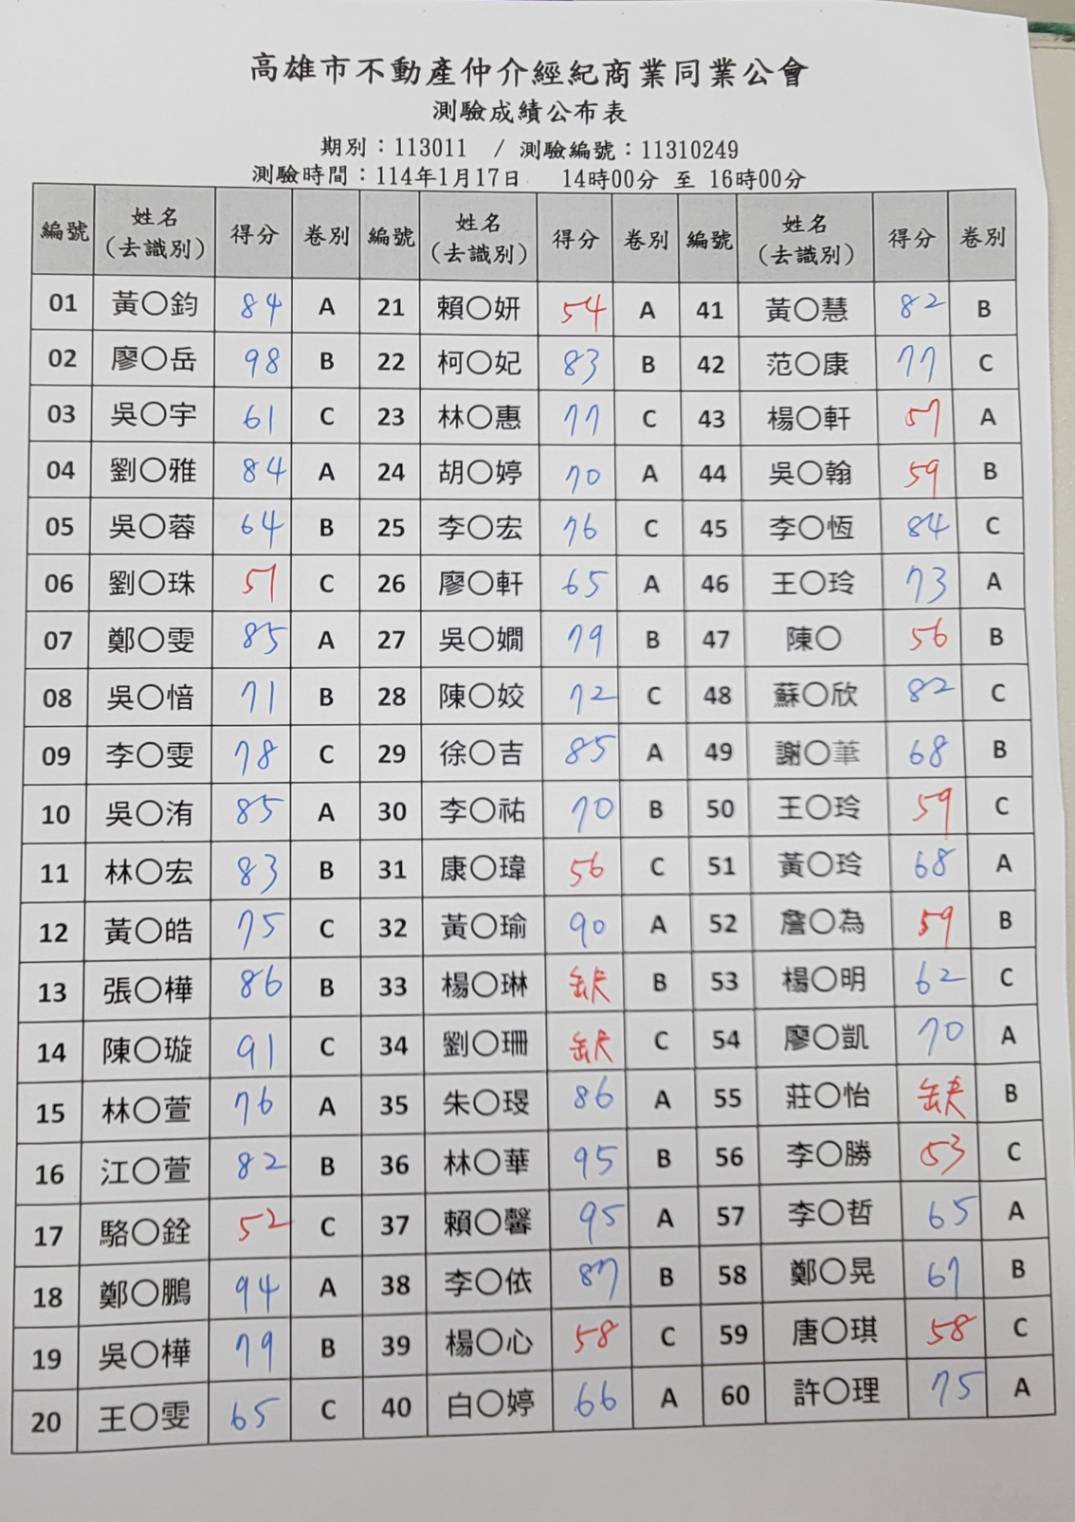 高雄市不動產仲介經紀商業同業公會
測驗成績公布表
期別：113011 / 測驗編號：11310249
測驗時間：114年1月17日 14時00分 至 16時00分
編號 姓名（去識別） 得分 卷別 編號 姓名（去識別） 得分 卷別 編號 姓名（去識別） 得分 卷別
01 黃〇鈞 84 A 21 賴〇妍 54 A 41 黃〇慧 82 B
02 廖〇岳 98 B 22 柯〇妃 83 B 42 范〇康 77 C
03 吳〇宇 61 C 23 林〇惠 77 C 43 楊〇軒 57 A
04 劉〇雅 84 A 24 胡〇婷 70 A 44 吳〇翰 59 B
05 吳〇蓉 64 B 25 李〇宏 76 C 45 李〇恆 84 C
06 劉〇珠 57 C 26 廖〇軒 65 A 46 王〇玲 73 A
07 鄭〇雯 85 A 27 吳〇嫺 79 B 47 陳〇 56 B
08 吳〇愔 71 B 28 陳〇姣 72 C 48 蘇〇欣 82 C
09 李〇雯 78 C 29 徐〇吉 85 A 49 謝〇 68 B
10 吳〇洧 85 A 30 李〇祐 70 B 50 王〇玲 59 C
11 林〇宏 83 B 31 康〇瑋 56 C 51 黃〇玲 68 A
12 黃〇皓 75 C 32 黃〇瑜 90 A 52 詹〇為 59 B
13 張〇樺 86 B 33 楊〇琳 缺 B 53 楊〇明 62 C
14 陳〇璇 91 C 34 劉〇珊 缺 C 54 廖〇凱 70 A
15 林〇萱 76 A 35 朱〇瑅 86 A 55 莊〇怡 缺 B
16 江〇萱 82 B 36 林〇華 95 B 56 李〇勝 53 C
17 駱〇銓 52 C 37 賴〇馨 95 A 57 李〇哲 65 A
18 鄭〇鵬 94 A 38 李〇依 87 B 58 鄭〇晃 67 B
19 吳〇樺 79 B 39 楊〇心 58 C 59 唐〇琪 58 C
20 王〇雯 65 C 40 白〇婷 66 A 60 許〇理 75 A